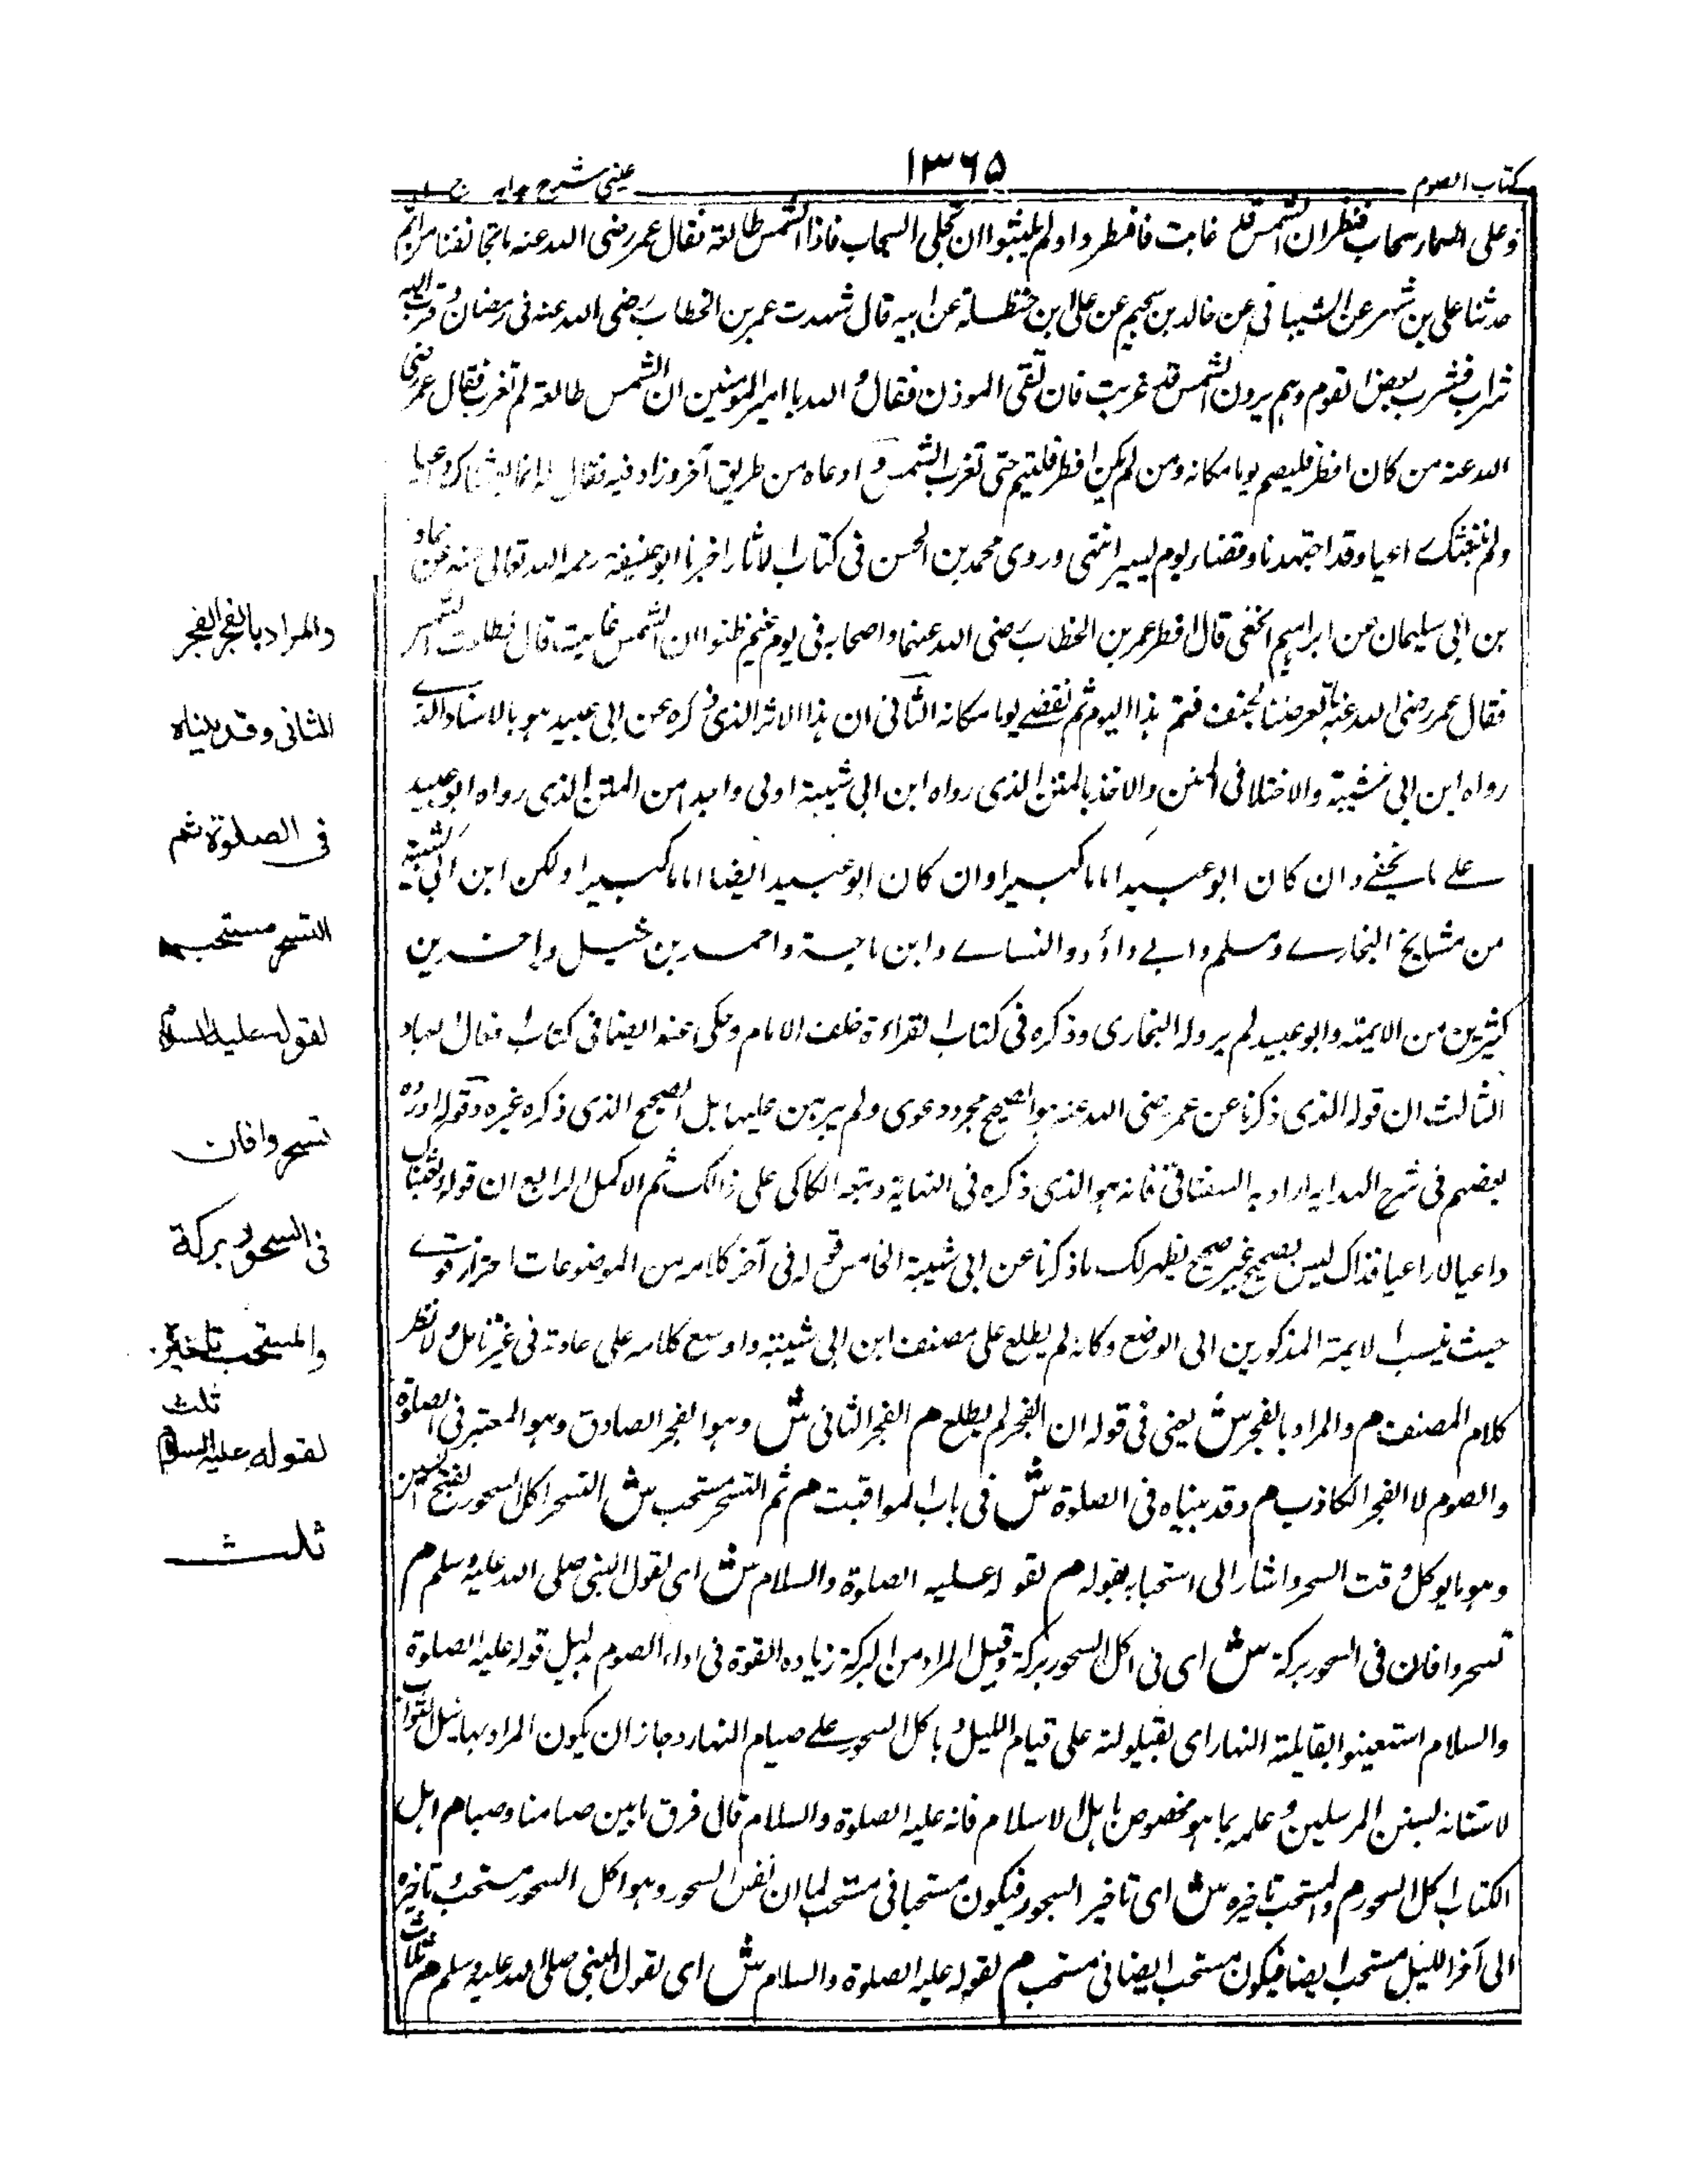 كتاب الصوم
١٣٦٥
عينى شرح هدايه ج ا
وعلى السماء سحاب فنظر ان الشمس قد غابت فافطر واولم يلبثوا ان تجلى السحاب فاذا الشمس طالعة فقال عمر رضى الله عنه ما تجانفنا من اثم
حدثنا على بن مسهر عن الشيبانى عن خالد بن سحيم عن على بن حنظلة عن ابيه قال شهدت عمر بن الخطاب رضى الله عنه فى رمضان وقرب اليه
شراب فشرب بعض القوم وهم يرون الشمس قد غربت فقال والله يا امير المومنين ان الشمس طالعة لم تغرب فقال عمر رضى
الله عنه من كان افطر فليصم يوما مكانه ومن لم يكن افطر فليتم حتى تغرب الشمس و اعاده من طريق آخر وزاد فيه فقال له انما بعثناك داعيا
ولم نبعثك راعيا وقد اجتهدنا وقضاء يوم يسير انتهى وروى محمد بن الحسن فى كتاب الاثار اخبرنا ابو حنيفة رحمه الله تعالى عنه عن حماد
بن ابى سليمان عن ابراهيم النخعى قال افطر عمر بن الخطاب رضى الله عنهما واصحابه فى يوم غيم ظنوا ان الشمس غابت قال فطلعت الشمس
فقال عمر رضى الله عنه ما تعرضنا لجنف فتم هذا اليوم ثم نقضى يوما مكانه الثانى ان هذا الاثر الذى ذكره عن ابى عبيد هو بالاسناد الذى
رواه ابن ابى شيبة والاختلاف فى المتن والاخذ بالمتن الذى رواه ابن ابى شيبة اولى واجدر من المتن الذى رواه ابو عبيد
على ما يخفى وان كان ابو عبيد اماما كبيرا وان كان ابو عبيد ايضا اماما كبيرا ولكن ابن ابى شيبة
من مشايخ البخارى ومسلم وابى داؤد والنساى وابن ماجة واحمد بن حنبل وآخرين
كثيرين من الايمة وابو عبيد لم يرو له البخارى وذكره فى كتاب القراءة خلف الامام وحكى عنه ايضا فى كتاب افعال العباد
الثالث ان قوله الذى ذكرنا عن عمر رضى الله عنه هو الصحيح مجرد دعوى ولم يبرهن عليها بل الصحيح الذى ذكره غيره وقوله اورده
بعضهم فى شرح الهدايه اراد به السغناقى فانه هو الذى ذكره فى النهاية وتبعه الكاكى على ذالك ثم الاكمل الرابع ان قوله بعثناك
داعيا لا راعيا فذاك ليس بصحيح غير صحيح يظهر لك ما ذكرنا عن ابى شيبة الخامس قوله فى آخر كلامه من الموضوعات احتراز قوى
حيث نيسب الايمة المذكورين الى الوضع وكانه لم يطلع على مصنف ابن ابى شيبة واوسع كلامه على عادة فى غير تامل ولا نظر
كلام المصنف م والمراد بالفجر ش يعنى فى قوله ان الفجر لم يطلع م الفجر الثانى ش وهو الفجر الصادق وهو المعتبر فى الصلوة
والصوم لا الفجر الكاذب م وقد بيناه فى الصلوة ش فى باب المواقيت م ثم التسحر مستحب ش التسحر اكل السحور بفتح السين
وهو ما يوكل وقت السحر واشار الى استحبابه بقوله م لقوله عليه الصلوة والسلام ش اى لقول النبى صلى الله عليه وسلم م
تسحروا فان فى السحور بركة ش اى فى اكل السحور بركة وقيل المراد من البركة زياده القوة فى اداء الصوم بدليل قوله عليه الصلوة
والسلام استعينوا بقايلة النهار اى بقيلولته على قيام الليل وباكل السحور على صيام النهار وجاز ان يكون المراد بها نيل الثواب
لاستنانه بسنن المرسلين وعلمه بما هو مخصوص باهل الاسلام فانه عليه الصلوة والسلام قال فرق ما بين صيامنا وصيام اهل
الكتاب اكل السحور م والمستحب تاخيره ش اى تاخير السحور فيكون مستحبا فى مستحب لما ان نفس السحور وهو اكل السحور مستحب وتاخيره
الى آخر الليل مستحب ايضا فيكون مستحب ايضا فى مستحب م لقوله عليه الصلوة والسلام ش اى لقول النبى صلى الله عليه وسلم م ثلاث
والمراد بالفجر الفجر
الثانى وقد بيناه
فى الصلوة ثم
التسحر مستحب
لقوله عليه السلام
تسحروا فان
فى السحور بركة
والمستحب تاخيره
ثلث
لقوله عليه السلام
ثلث